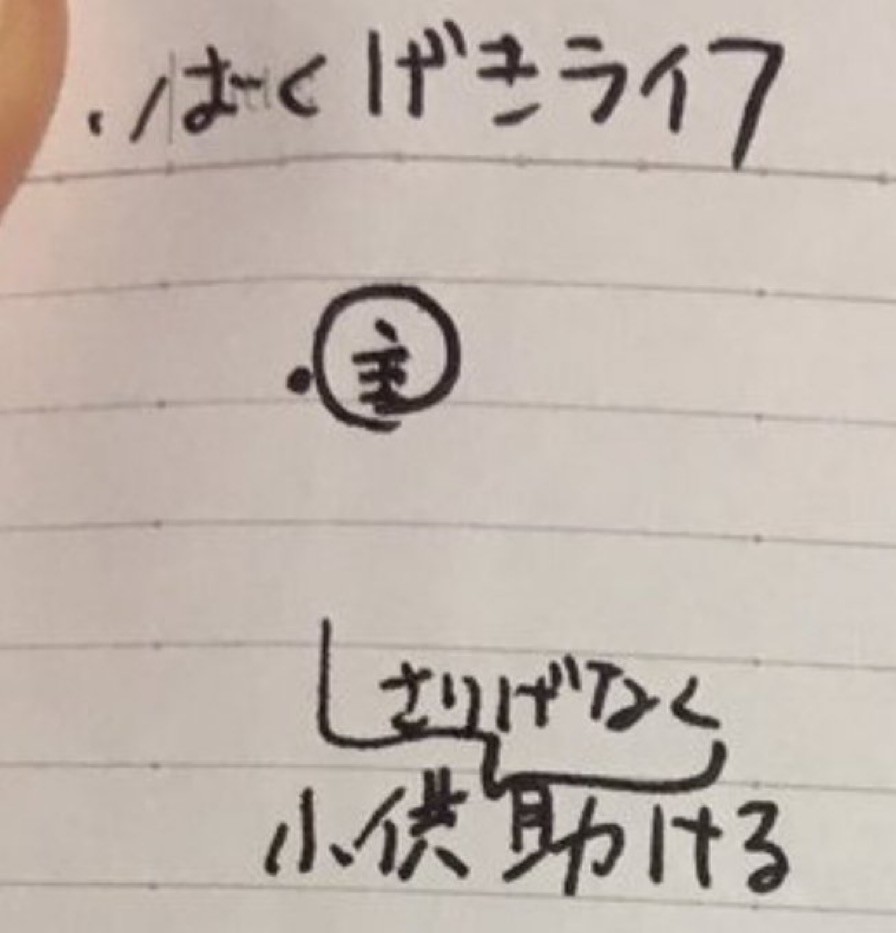 ・ばくげきライフ
・主
さりげなく
小供助ける